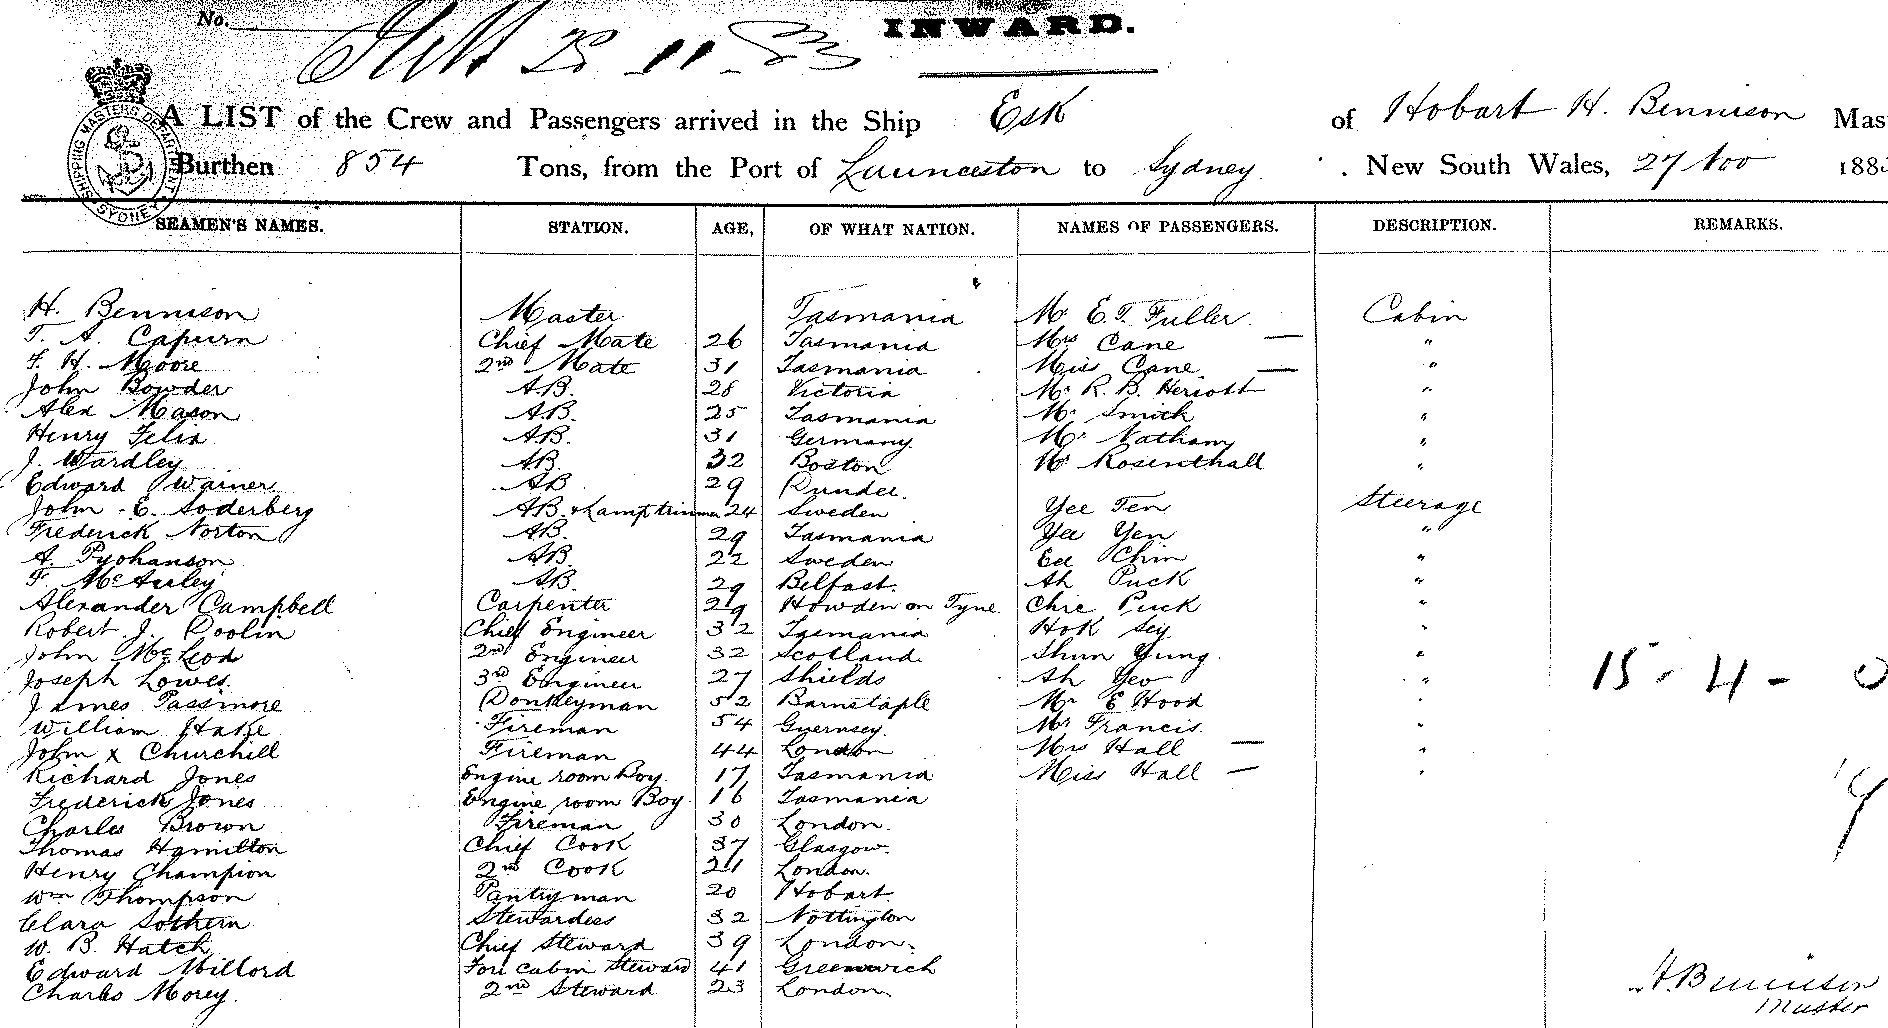 No.
INWARD.
A LIST of the Crew and Passengers arrived in the Ship Esk of Hobart H. Bennison Mas
Burthen 854 Tons, from the Port of Launceston to Sydney. New South Wales, 27 Nov 188
SHIPPING MASTERS DEPARTMENT SYDNEY
SEAMEN'S NAMES. STATION. AGE, OF WHAT NATION. NAMES OF PASSENGERS. DESCRIPTION. REMARKS.
H. Bennison Master Tasmania Mr E.T. Fuller. Cabin
T. A. Capurn Chief Mate 26 Tasmania Mrs Cane — "
F. H. Moore 2nd Mate 31 Tasmania Miss Cane — "
John Bowder A.B. 28 Victoria Mr R. B. Heriott "
Alex Mason A.B. 25 Tasmania Mr Smith "
Henry Felix A.B. 31 Germany Mr Nathan "
J. Wardley A.B. 32 Boston Mr Rosenthall "
Edward Warner A.B 29 Dundee.
John E. Soderberg A.B. & Lamptrimmer 24 Sweden Yee Ten Steerage
Frederick Norton A.B. 29 Tasmania Yee Yen "
A. A.B. 22 Sweden Ee Chin "
F. McAuley A.B. 29 Belfast. Ah Puck "
Alexander Campbell Carpenter 29 Howden on Tyne Chie Puck "
Robert J. Doolin Chief Engineer 32 Tasmania Hok Sey "
John McLeod 2nd Engineer 32 Scotland. Shun Yung. "
Joseph Lowes. 3rd Engineer 27 Shields Ah Yeo "
James Passmore Donkeyman 52 Barnstaple Mr E Hood "
William Hake Fireman 54 Guernsey. Mr Francis. "
John x Churchill Fireman 44 London Mrs Hall — "
Richard Jones Engine room Boy. 17 Tasmania Miss Hall — "
Frederick Jones Engine room Boy 16 Tasmania
Charles Brown Fireman 30 London.
Thomas Hamilton Chief Cook 37 Glasgow.
Henry Champion 2nd Cook 21 London.
Wm Thompson Pantryman 20 Hobart
Clara Sothern Stewardess 32 Nottington
W. B. Hatch Chief Steward 39 London.
Edward Millord Fore cabin Steward 41 Greenwich
Charles Morey. 2nd Steward 23 London.
15 - 4 - 0
H. Bennison
Master